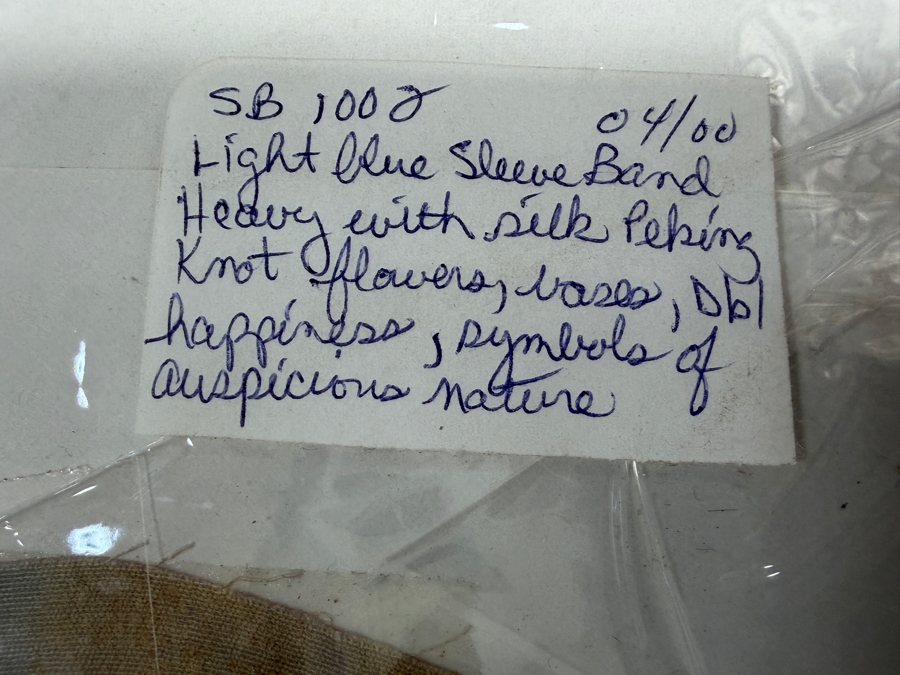 SB 1002 04/00
Light blue Sleeve Band
Heavy with silk Peking
Knot flowers, vases, Dbl
happiness, symbols of
auspicious nature